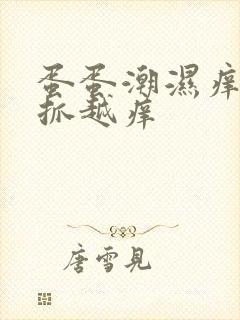 蛋蛋潮濕痒
抓越痒
唐雪見